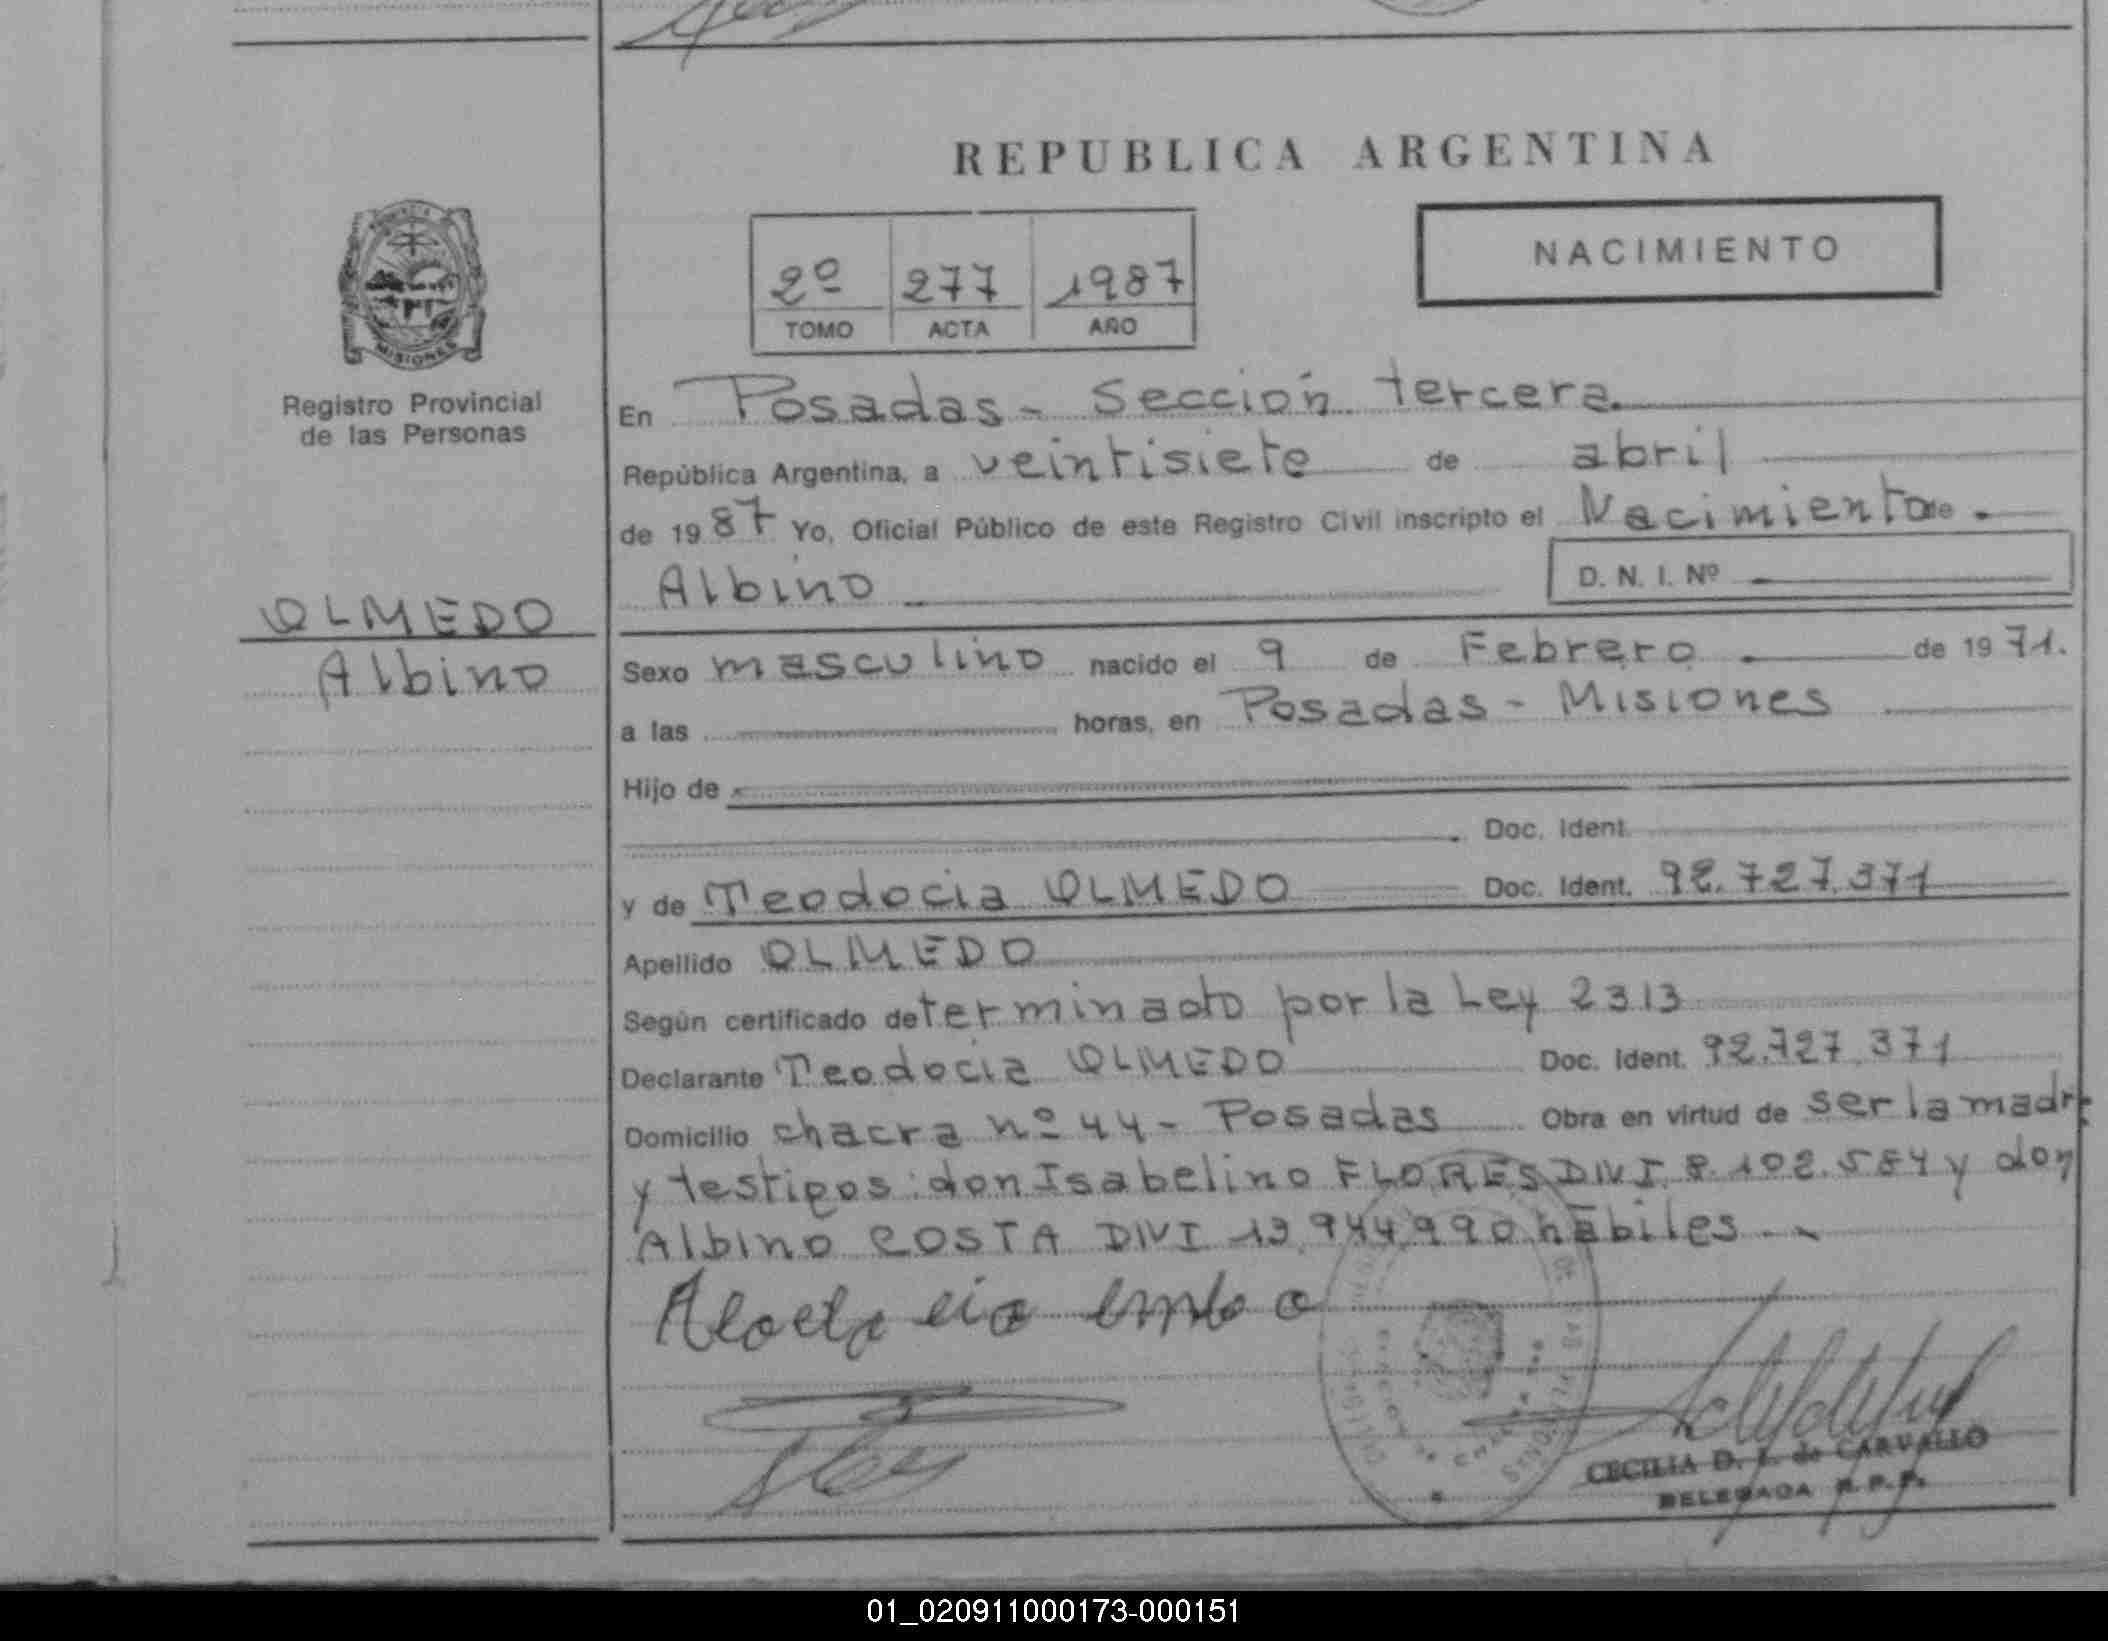 REPUBLICA ARGENTINA
NACIMIENTO
2º 277 1987
TOMO ACTA AÑO
MISIONES
Registro Provincial
de las Personas
OLMEDO
Albino
En Posadas - Sección tercera.
República Argentina, a veintisiete de abril
de 1987 Yo, Oficial Público de este Registro Civil inscripto el Nacimiento de
Albino D. N. I. Nº
Sexo masculino nacido el 9 de Febrero de 1971.
a las horas, en Posadas - Misiones
Hijo de
Doc. Ident.
y de Teodocia OLMEDO Doc. Ident. 92.727.371
Apellido OLMEDO
Según certificado determinado por la Ley 2313
Declarante Teodocia OLMEDO Doc. Ident. 92.727.371
Domicilio chacra nº 44 - Posadas Obra en virtud de ser la madre
y testigos: don Isabelino FLORES DNI 8.102.584 y don
Albino COSTA DNI 13.944.990 hábiles
CECILIA D. L. de CARVALLO
DELEGADA R.P.P.
01_020911000173-000151